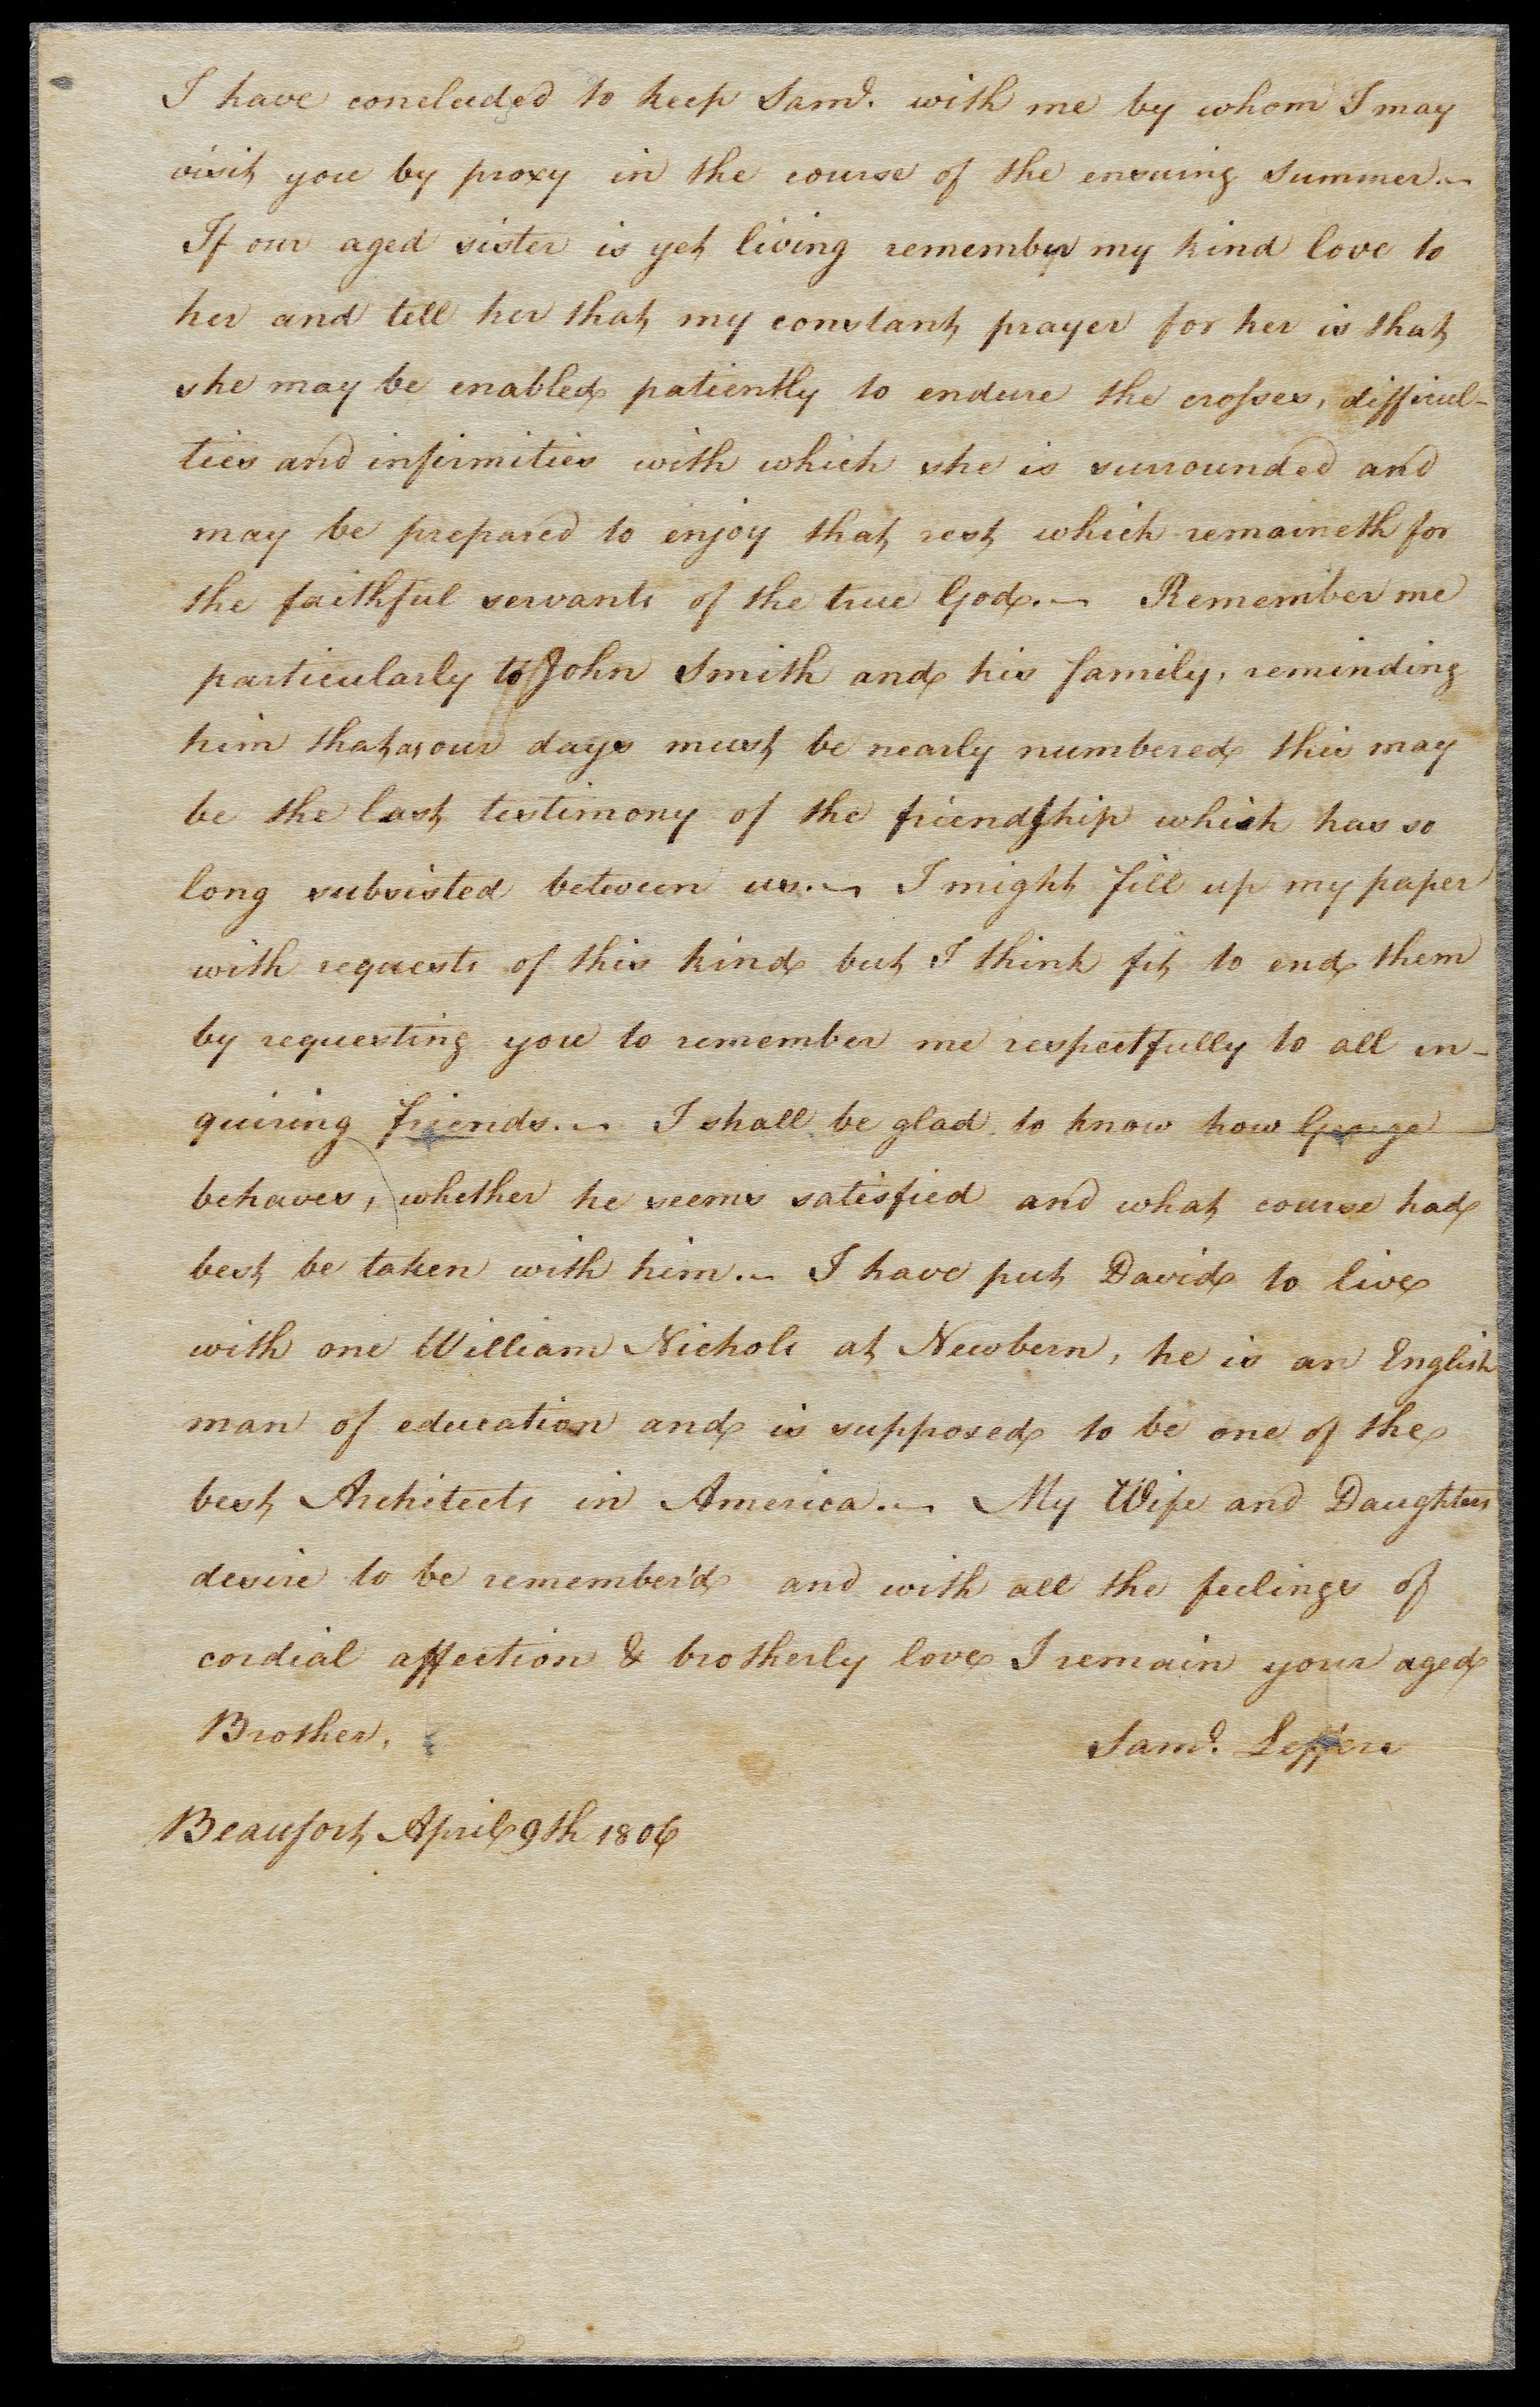 I have concluded to keep Saml. with me by whom I may
visit you by proxy in the course of the ensuing summer.—
If our aged sister is yet living remember my kind love to
her and tell her that my constant prayer for her is that
she may be enabled patiently to endure the crosses, difficul-
ties and infirmities with which she is surrounded and
may be prepared to enjoy that rest which remaineth for
the faithful servants of the true God.— Remember me
particularly to John Smith and his family, reminding
him that as our days must be nearly numbered this may
be the last testimony of the friendship which has so
long subsisted between us.— I might fill up my paper
with requests of this kind but I think fit to end them
by requesting you to remember me respectfully to all in-
quiring friends.— I shall be glad to know how George
behaves, whether he seems satisfied and what course had
best be taken with him.— I have put David to live
with one William Nichols at Newbern, he is an English
man of education and is supposed to be one of the
best Architects in America.— My Wife and Daughters
desire to be remember'd and with all the feelings of
cordial affection & brotherly love I remain your aged
Brother,
Saml. Leffers
Beaufort April 9th 1806